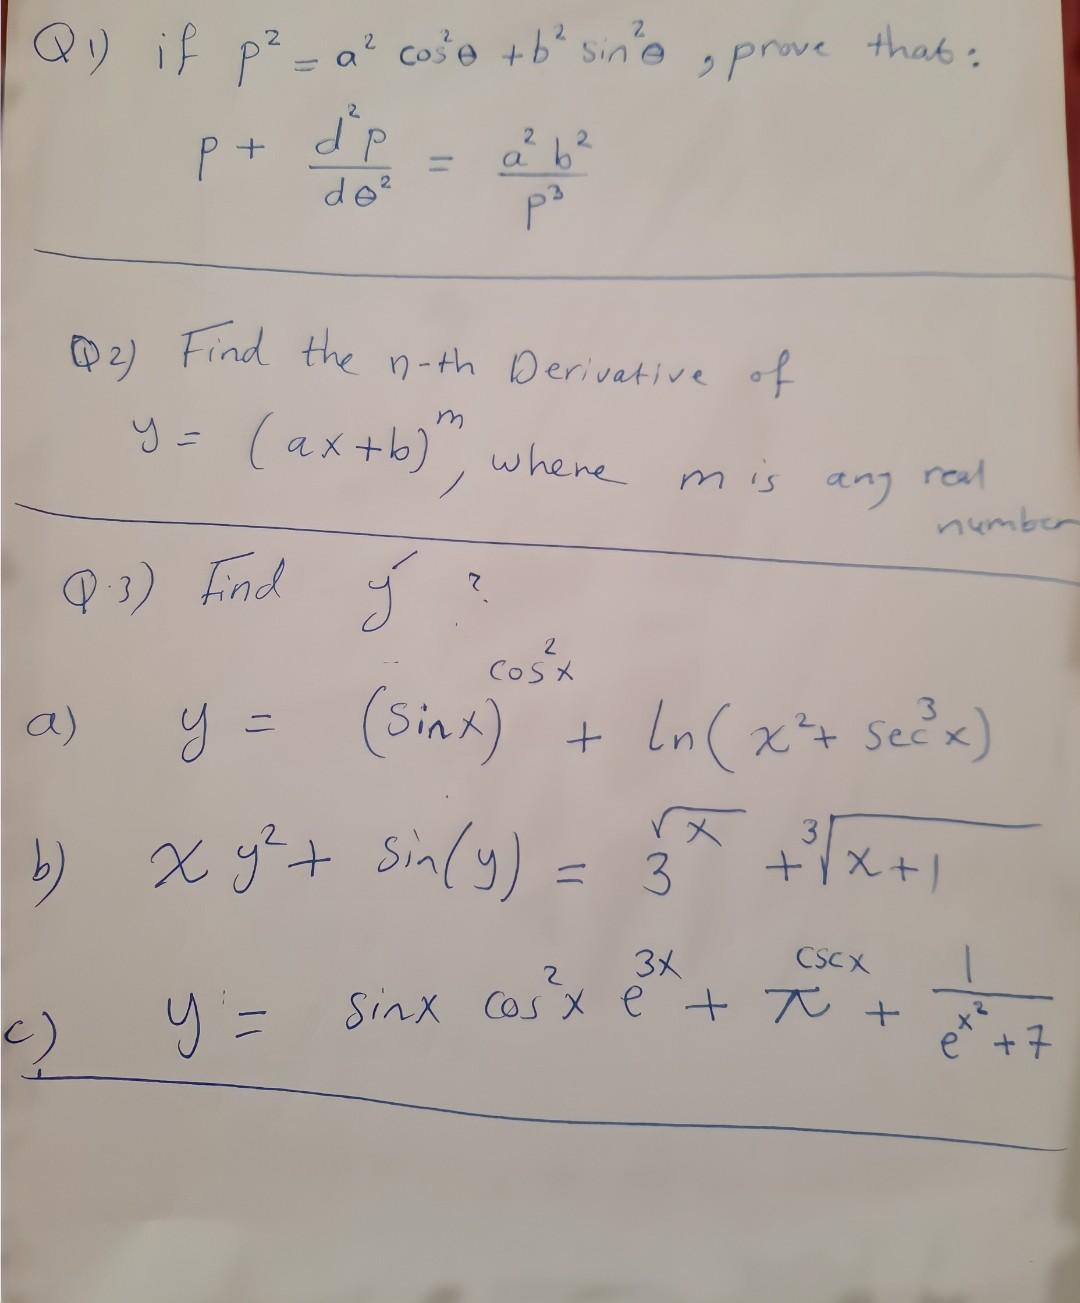 Q1) if p² = a² cos²θ + b² sin²θ , prove that:
p + d²p/dθ² = a² b²/p³
Q2) Find the n-th Derivative of
y = (ax+b)^m, where m is any real
number
Q.3) Find y' ?
a) y = (sinx)^cos²x + ln(x²+ sec³x)
b) x y² + sin(y) = 3^√x + ∛(x+1)
c) y = sinx cos²x e^3x + π^cscx + 1/(e^x² + 7)